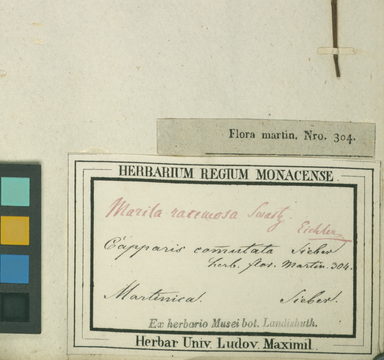 Flora martin. Nro. 304.
HERBARIUM REGIUM MONACENSE
Marila racemosa Swartz.
Eichler
Capparis comutata Sieber
herb. flor. Martin. 304.
Martinica. Sieber.
Ex herbario Musei bot. Landishuth.
Herbar Univ. Ludov. Maximil.